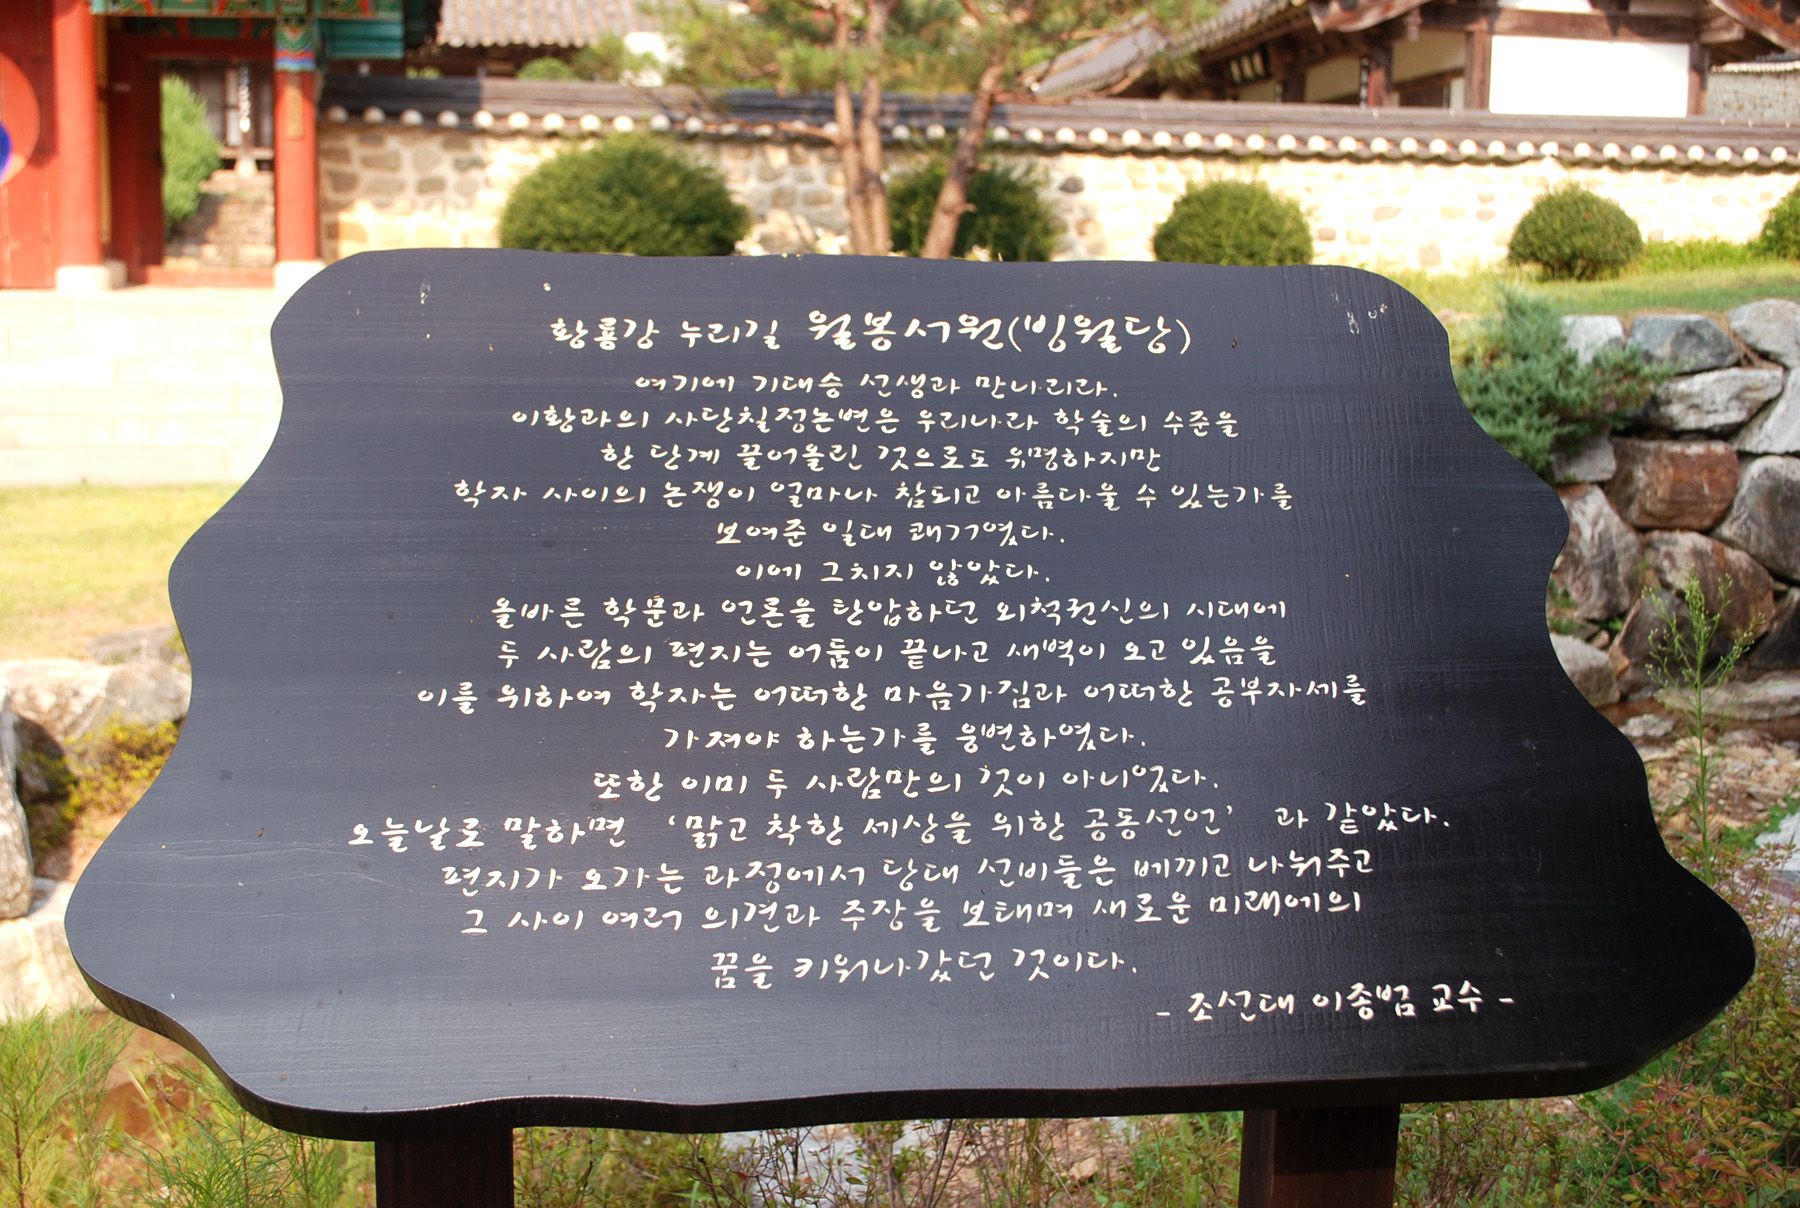 황룡강 누리길 월봉서원(빙월당)
여기에 기대승 선생과 만나리라.
이황과의 사단칠정논변은 우리나라 학술의 수준을
한 단계 끌어올린 것으로도 유명하지만
학자 사이의 논쟁이 얼마나 참되고 아름다울 수 있는가를
보여준 일대 쾌거였다.
이에 그치지 않았다.
올바른 학문과 언론을 탄압하던 외척권신의 시대에
두 사람의 편지는 어둠이 끝나고 새벽이 오고 있음을
이를 위하여 학자는 어떠한 마음가짐과 어떠한 공부자세를
가져야 하는가를 웅변하였다.
또한 이미 두 사람만의 것이 아니었다.
오늘날로 말하면 ‘맑고 착한 세상을 위한 공동선언’ 과 같았다.
편지가 오가는 과정에서 당대 선비들은 베끼고 나눠주고
그 사이 여러 의견과 주장을 보태며 새로운 미래에의
꿈을 키워나갔던 것이다.
- 조선대 이종범 교수 -